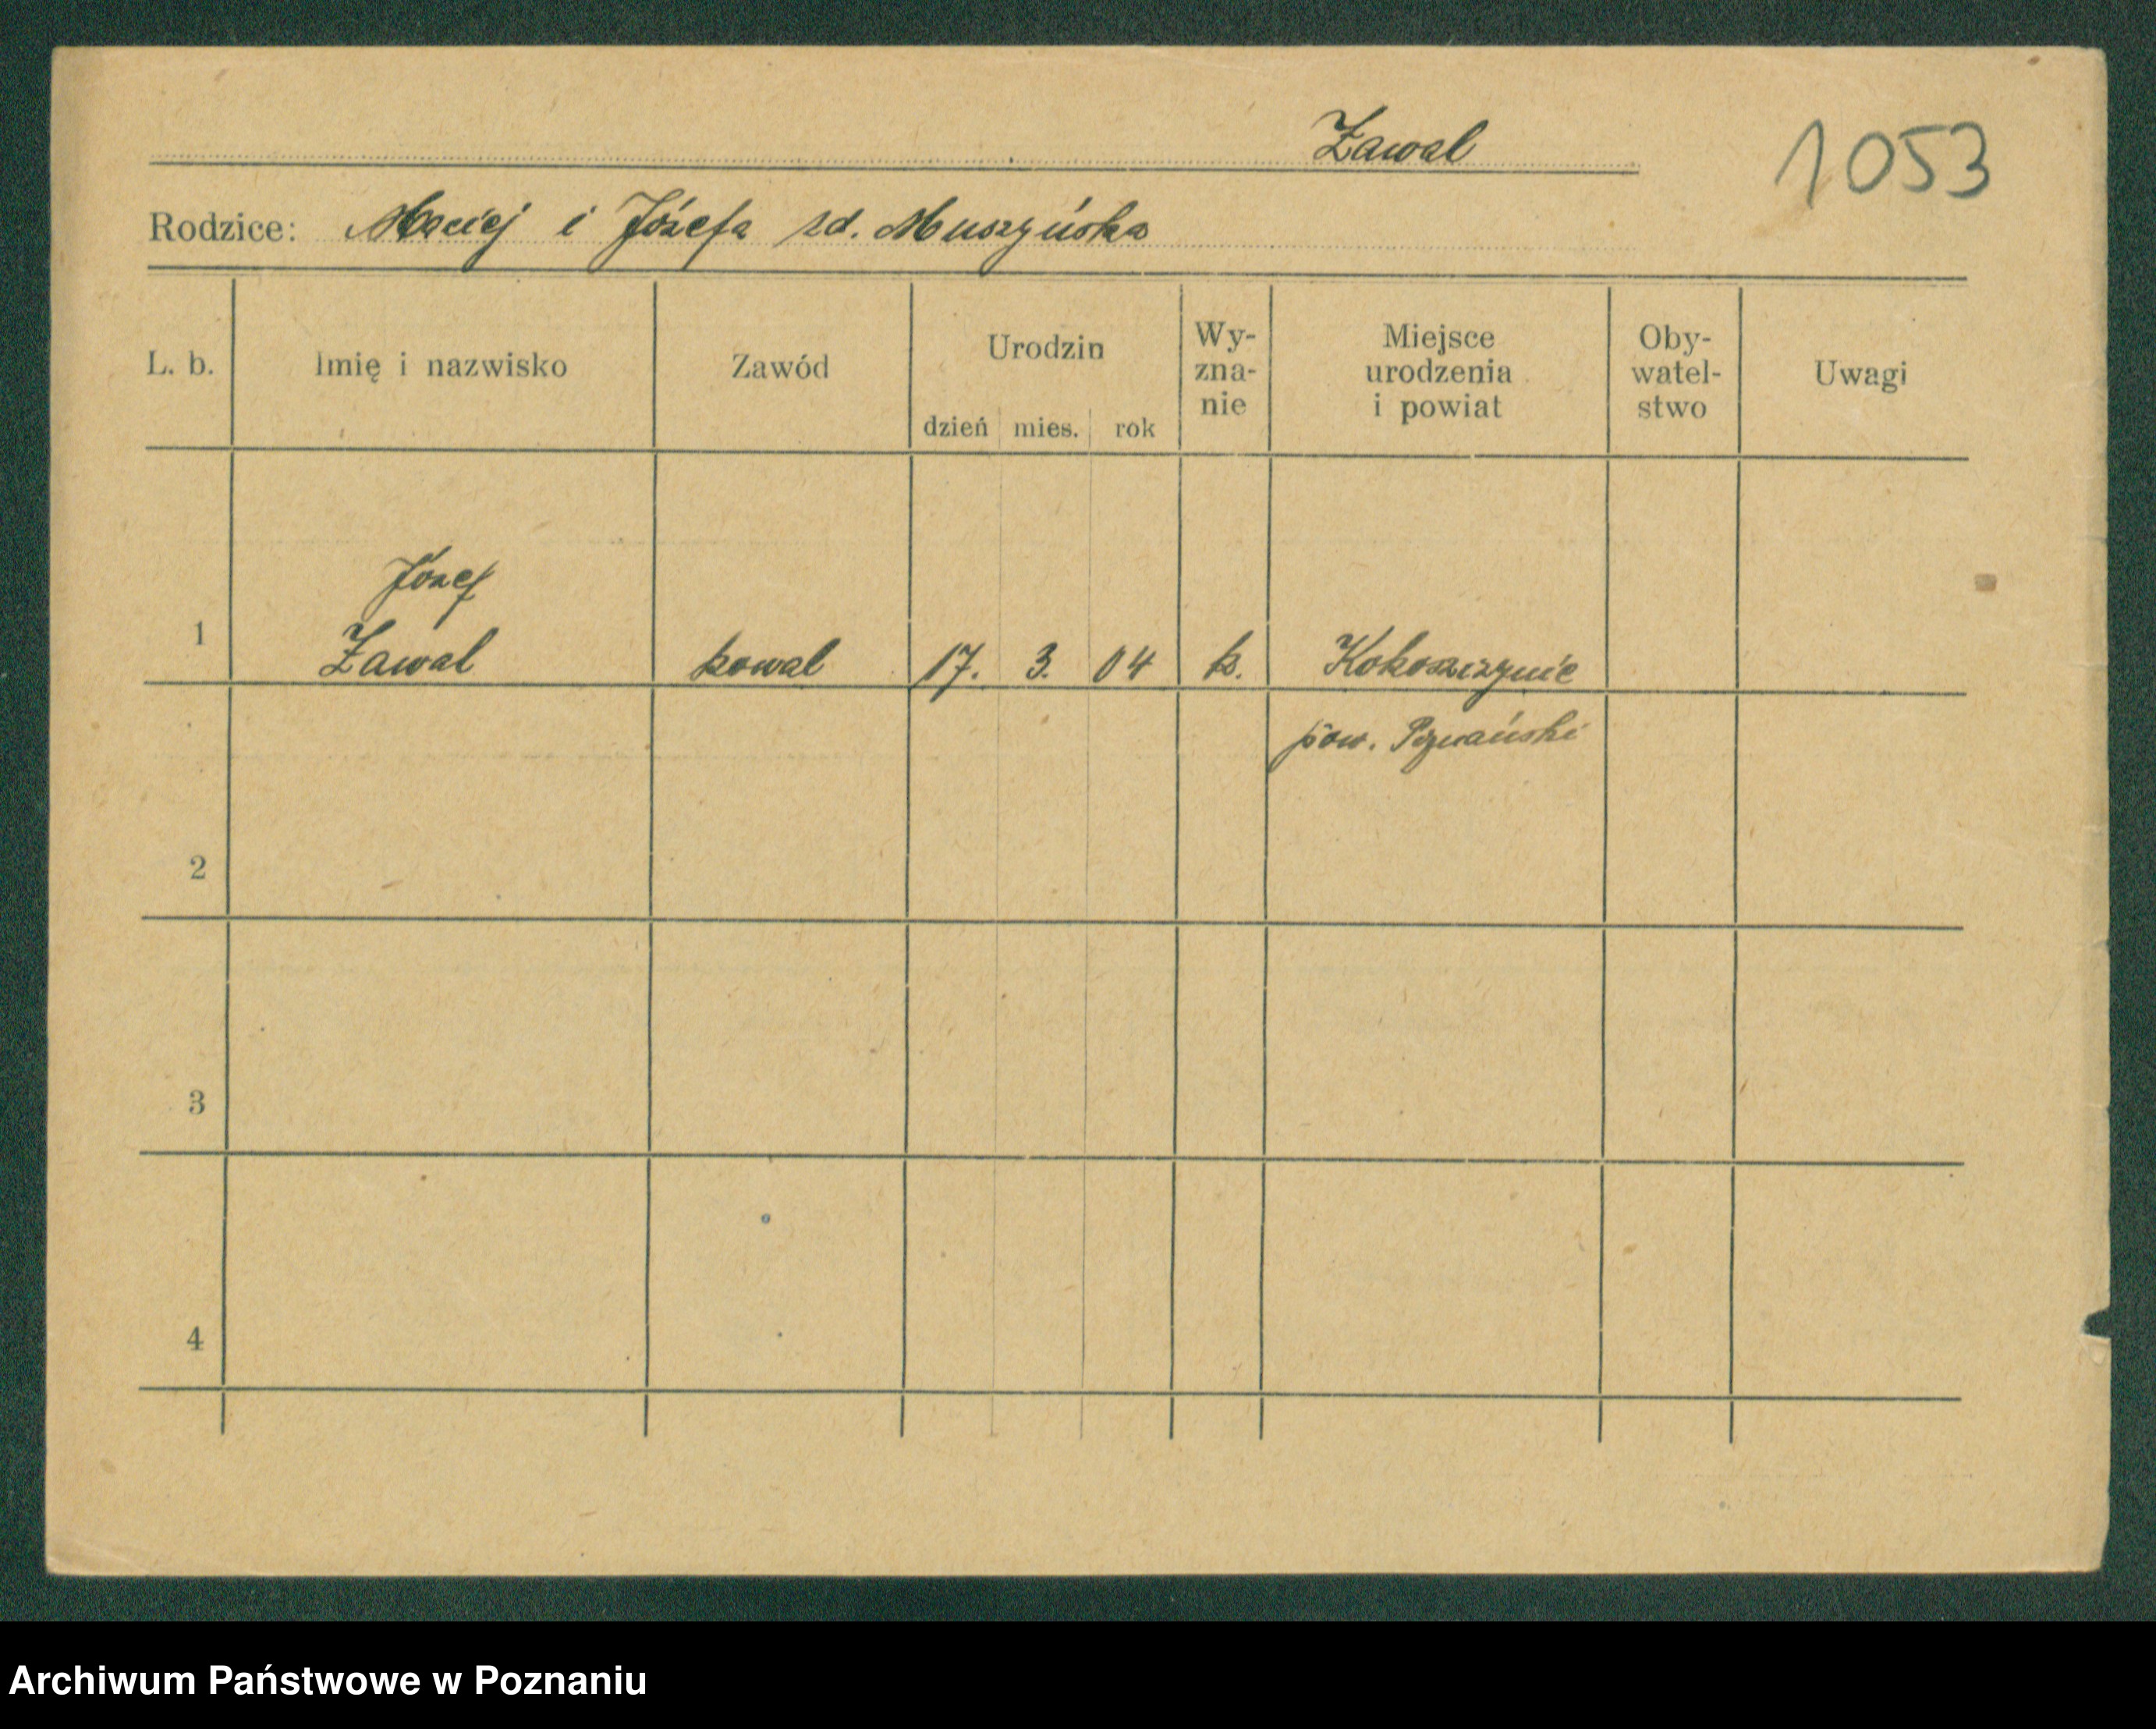 Zawal
1053
Rodzice: Maciej i Józefa zd. Muszyńska
L. b. Imię i nazwisko Zawód Urodzin dzień mies. rok Wy-zna-nie Miejsce urodzenia i powiat Oby-watel-stwo Uwagi
Józef
1 Zawal kowal 17. 3. 04 k. Kokoszczynie
pow. Poznański
2
3
4
Archiwum Państwowe w Poznaniu